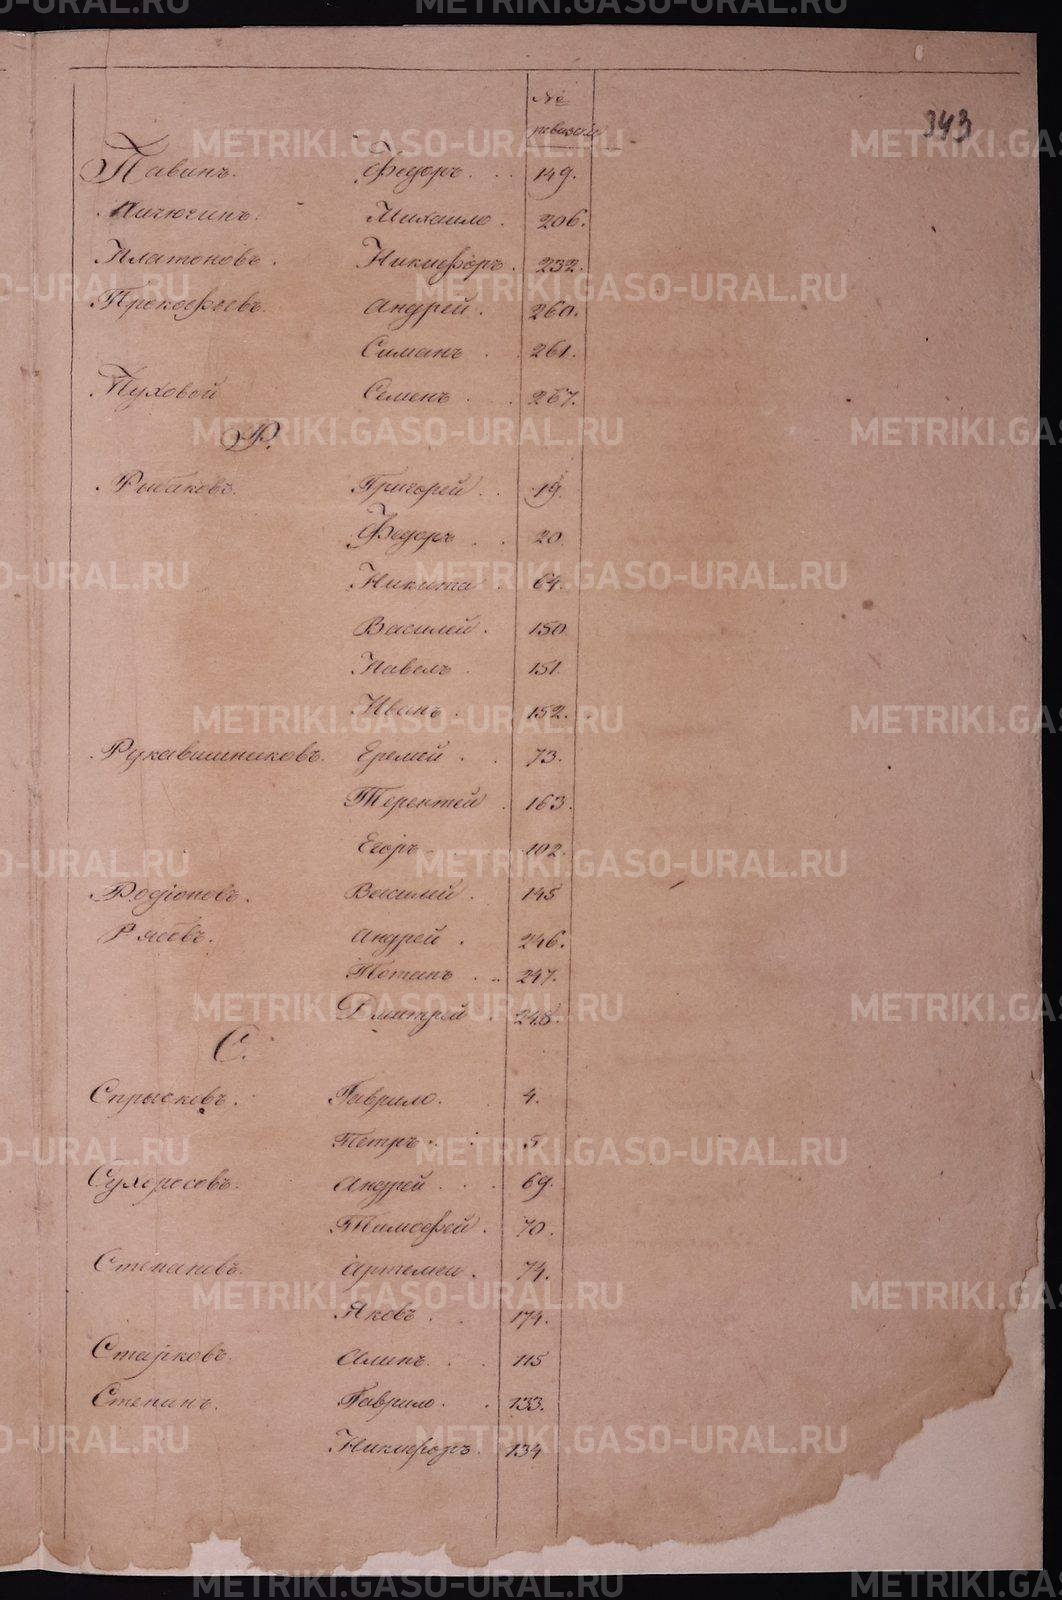 №
ревизск.
343
Павинъ. Федоръ. 149.
Пичюгинъ. Михаило. 206.
Платоновъ. Никифоръ. 232.
Прокофьевъ. Андрей. 260.
Симанъ. 261.
Пуховой Семенъ. 267.
Р.
Рыбаковъ. Григорей. 19.
Федоръ. 20.
Никита. 64.
Василей. 150.
Павелъ. 151.
Иванъ. 152.
Рукавишниковъ. Еремей. 73.
Терентей. 163.
Егоръ. 102.
Родіоновъ. Василей. 145
Рябовъ. Андрей. 246.
Потапъ. 247.
Дмитрей. 248.
С.
Спрысковъ. Гаврило. 4.
Петръ. 5.
Сухоросовъ. Андрей. 69.
Тимофей. 70.
Степановъ. Артемеи. 74.
Яковъ. 174.
Старковъ. Алипъ. 115
Степинъ. Гаврило. 133.
Никифоръ. 134
METRIKI.GASO-URAL.RU